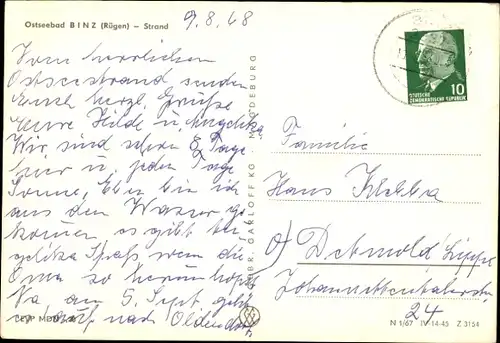 Ostseebad BINZ (Rügen) – Strand
9.8.68
Vom herrlichen
Ostseestrand senden
Euch herzl. Grüße
Eure Hilde u. Angelika
Wir sind schon 8 Tage
hier u. jeden Tag
Sonne, Eben bin ich
aus dem Wasser ge
kommen es gibt An
gelika Spaß wenn die
Oma so herumhopst
Na am 5. Sept. geht
es auf nach Oldendorf
10
DEUTSCHE
DEMOKRATISCHE REPUBLIK
Familie
Hans
Detmold/Lippe
24
GARLOFF KG
MAGDEBURG
N 1/67 IV-14-45 Z 3154